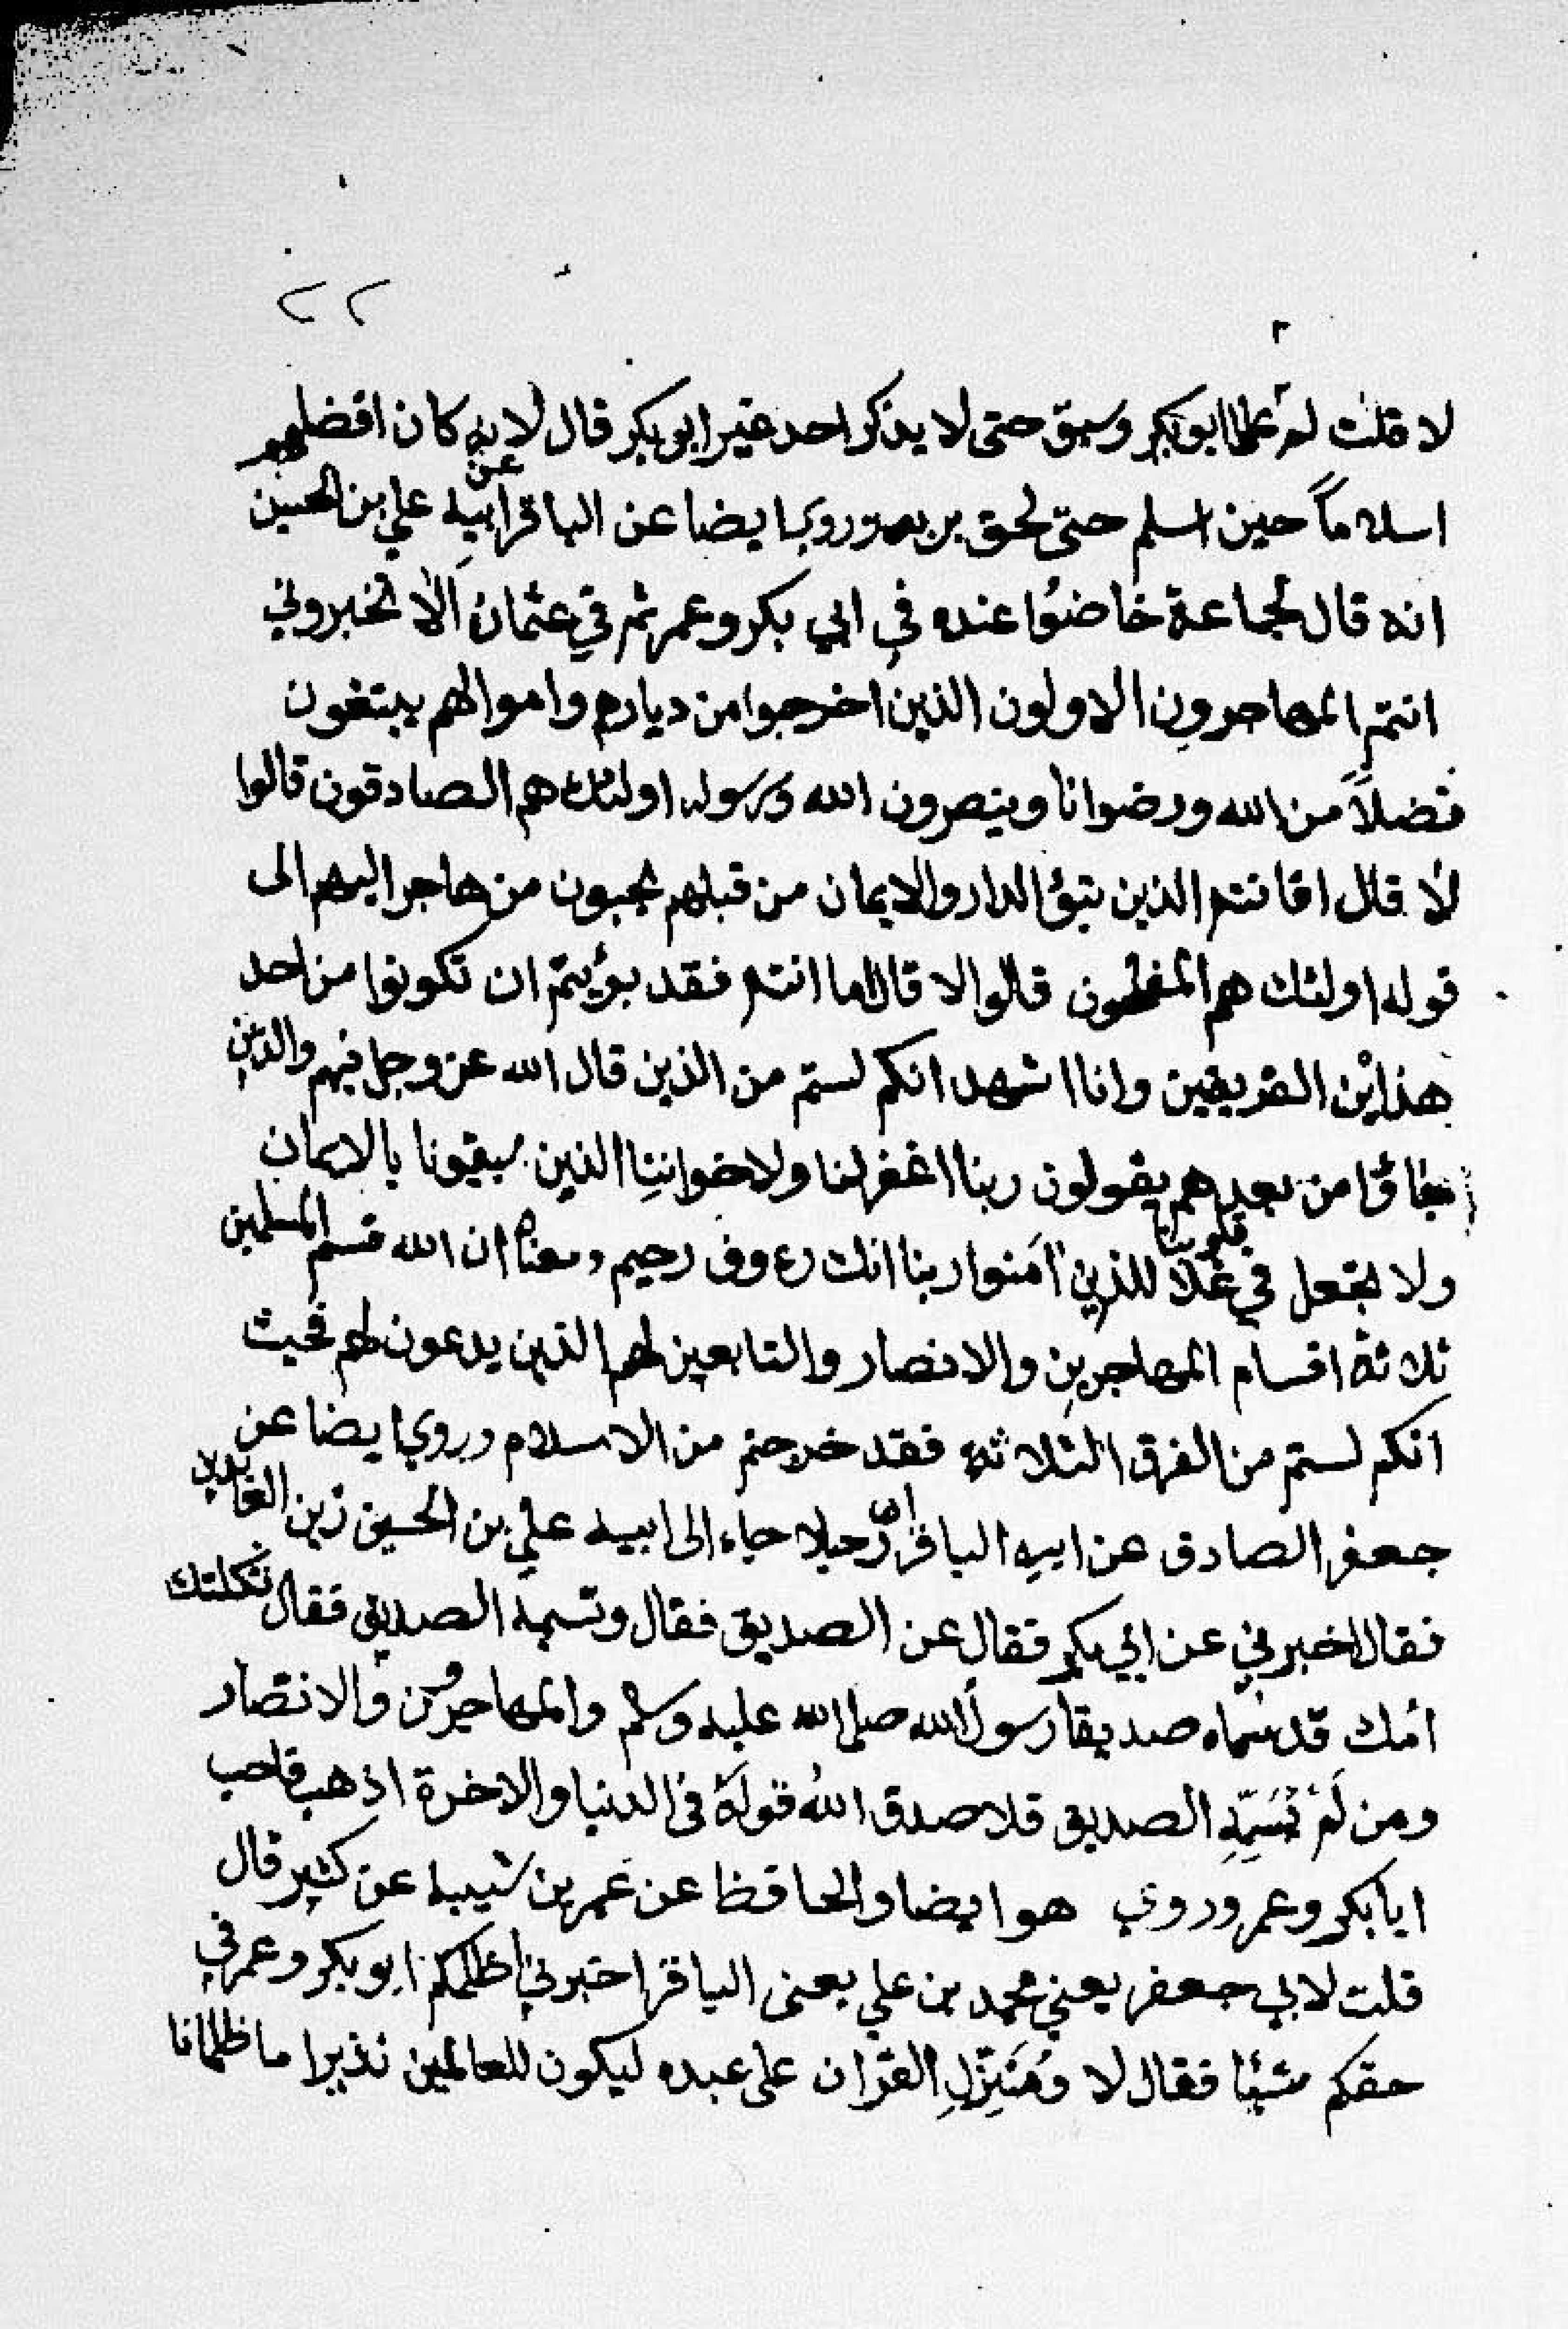 ٢٢
لا قلت لم علا ابو بكر وسبق حتى لا يذكر احد غير ابو بكر قال لانه كان افضلهم
اسلاماً حين اسلم حتى لحق بربه وروي ايضا عن الباقر عن ابيه علي بن الحسين
انه قال لجماعة خاضوا عنده في ابي بكر وعمر ثم في عثمان الا تخبروني
انتم المهاجرون الاولون الذين اخرجوا من ديارهم واموالهم يبتغون
فضلاً من الله ورضوانا وينصرون الله ورسوله اولئك هم الصادقون قالوا
لا قال افانتم الذين تبؤ الدار والايمان من قبلهم يحبون من هاجر اليهم الى
قوله اولئك هم المفلحون قالوا لا قال اما انتم فقد بؤيتم ان تكونوا من احد
هذاين الفريقين وانا اشهد انكم لستم من الذين قال الله عز وجل فيهم والذين
جاؤا من بعدهم يقولون ربنا اغفر لنا ولاخواننا الذين سبقونا بالايمان
ولا تجعل في قلوبنا غلاّ للذين آمنوا ربنا انك رءوف رحيم ومعناه ان الله قسم المسلمين
ثلاثة اقسام المهاجرين والانصار والتابعين لهم الذين يدعون لهم فحيث
انكم لستم من الفرق الثلاثه فقد خرجتم من الاسلام وروي ايضا عن
جعفر الصادق عن ابيه الباقر ان رجلا جاء الى ابيه علي بن الحسين زين العابدين
فقال اخبرني عن ابي بكر فقال عن الصديق فقال وتسميه الصديق فقال ثكلتك
امك قد سماه صديقا رسول الله صلى الله عليه وسلم والمهاجرون والانصار
ومن لَمْ تُسَمِّهِ الصديق فلا صدق اللهُ قولَهُ في الدنيا والاخرة اذهب فاحب
ابا بكر وعمر وروي هو ايضا والحافظ عن عمر بن شيبه عن كثير قال
قلت لابي جعفر يعني محمد بن علي يعنى الباقر اخبرني اظلمكم ابو بكر وعمر في
حقكم شيئا فقال لا ومُنَزِّلِ القران على عبده ليكون للعالمين نذيرا ما ظلمانا